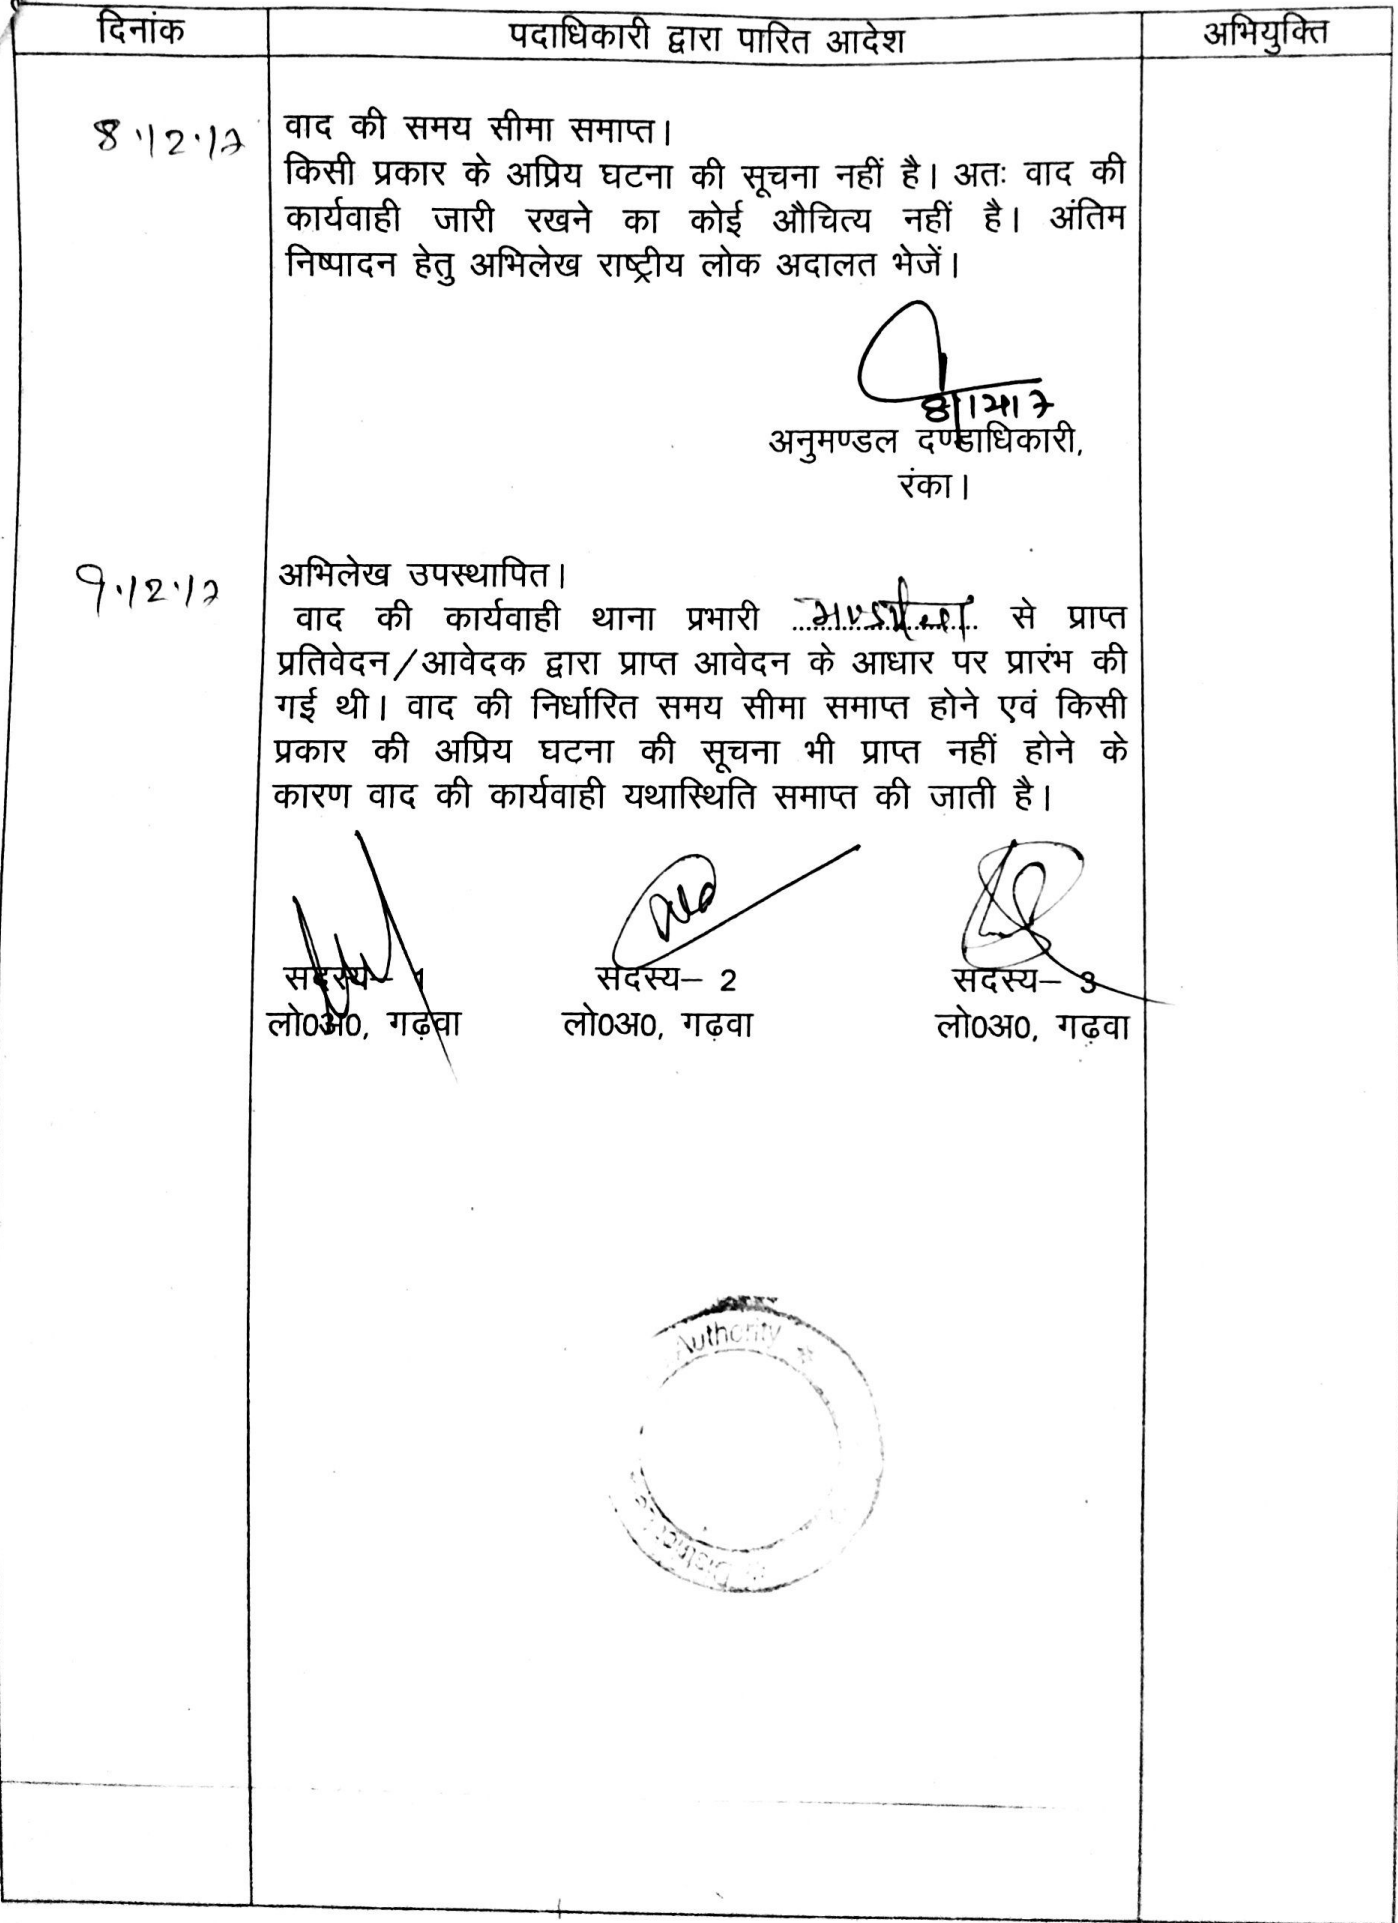 दिनांक पदाधिकारी द्वारा पारित आदेश अभियुक्ति
8.12.17 वाद की समय सीमा समाप्त।
किसी प्रकार के अप्रिय घटना की सूचना नहीं है। अतः वाद की
कार्यवाही जारी रखने का कोई औचित्य नहीं है। अंतिम
निष्पादन हेतु अभिलेख राष्ट्रीय लोक अदालत भेजें।
अनुमण्डल दण्डाधिकारी,
रंका।
9.12.17 अभिलेख उपस्थापित।
वाद की कार्यवाही थाना प्रभारी से प्राप्त
प्रतिवेदन/आवेदक द्वारा प्राप्त आवेदन के आधार पर प्रारंभ की
गई थी। वाद की निर्धारित समय सीमा समाप्त होने एवं किसी
प्रकार की अप्रिय घटना की सूचना भी प्राप्त नहीं होने के
कारण वाद की कार्यवाही यथास्थिति समाप्त की जाती है।
सदस्य– 1 सदस्य– 2 सदस्य– 3
लो0अ0, गढ़वा लो0अ0, गढ़वा लो0अ0, गढ़वा
Authority
District